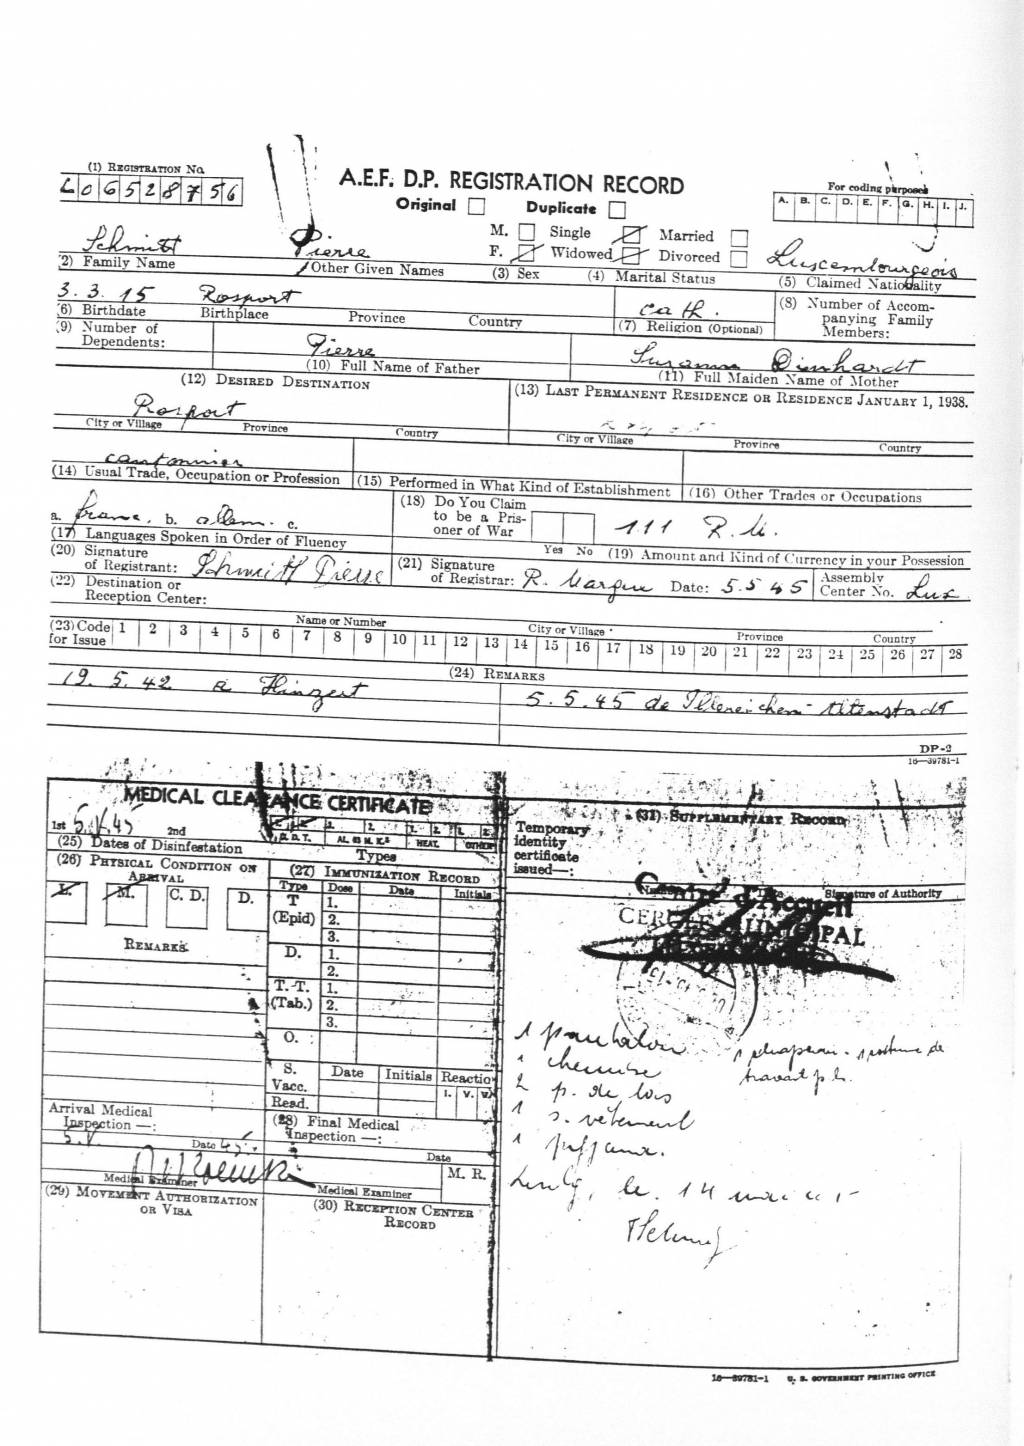 (1) REGISTRATION No.
L 0 6 5 2 8 7 5 6
A.E.F. D.P. REGISTRATION RECORD
Original Duplicate
For coding purposes
A. B. C. D. E. F. G. H. I. J.
M. Single Married
F. Widowed Divorced
Schmitt Pierre Luxembourgeois
(2) Family Name Other Given Names (3) Sex (4) Marital Status (5) Claimed Nationality
3.3.15 Rosport cath.
(6) Birthdate Birthplace Province Country (7) Religion (Optional) (8) Number of Accompanying Family Members:
(9) Number of Dependents:
Pierre Suzanne Dienhardt
(10) Full Name of Father (11) Full Maiden Name of Mother
(12) DESIRED DESTINATION (13) LAST PERMANENT RESIDENCE OR RESIDENCE JANUARY 1, 1938.
Rosport
City or Village Province Country City or Village Province Country
cantonnier
(14) Usual Trade, Occupation or Profession (15) Performed in What Kind of Establishment (16) Other Trades or Occupations
a. franc. b. allem. c.
(17) Languages Spoken in Order of Fluency
(18) Do You Claim to be a Prisoner of War
Yes No
111 R.M.
(19) Amount and Kind of Currency in your Possession
(20) Signature of Registrant: Schmitt Pierre (21) Signature of Registrar: R. Date: 5.5.45 Assembly Center No. Lux
(22) Destination or Reception Center:
Name or Number City or Village Province Country
(23) Code for Issue 1 2 3 4 5 6 7 8 9 10 11 12 13 14 15 16 17 18 19 20 21 22 23 24 25 26 27 28
(24) REMARKS
19.5.42 a Hinzert 5.5.45 de Illereichen-Altenstadt
DP-2
16—39781-1
MEDICAL CLEARANCE CERTIFICATE
1st 5.V.45 2nd
(25) Dates of Disinfestation
D.D.T. AL. 63 M. K.3 HEAT. OTHER
Types
(26) PHYSICAL CONDITION ON ARRIVAL
L. M. C. D. D.
REMARKS
(27) IMMUNIZATION RECORD
Type Dose Date Initials
T (Epid) 1. 2. 3.
D. 1. 2.
T.-T. (Tab.) 1. 2. 3.
O.
S. Vacc. Date Initials Reaction
Read. I. V. V.
Arrival Medical Inspection —:
5.V. Date 45.
Medical Examiner
(28) Final Medical Inspection —:
Date
Medical Examiner M. R.
(29) MOVEMENT AUTHORIZATION OR VISA
(30) RECEPTION CENTER RECORD
(31) SUPPLEMENTARY RECORD
Temporary identity certificate issued—:
Number Date Signature of Authority
Centre d'Accueil
CERCLE MUNICIPAL
1 pantalon
1 chemise
2 p. de bas
1 s. vêtement
1
1 chapeau - 1 costume de
travail
le 14 mai
16—39781-1 U. S. GOVERNMENT PRINTING OFFICE